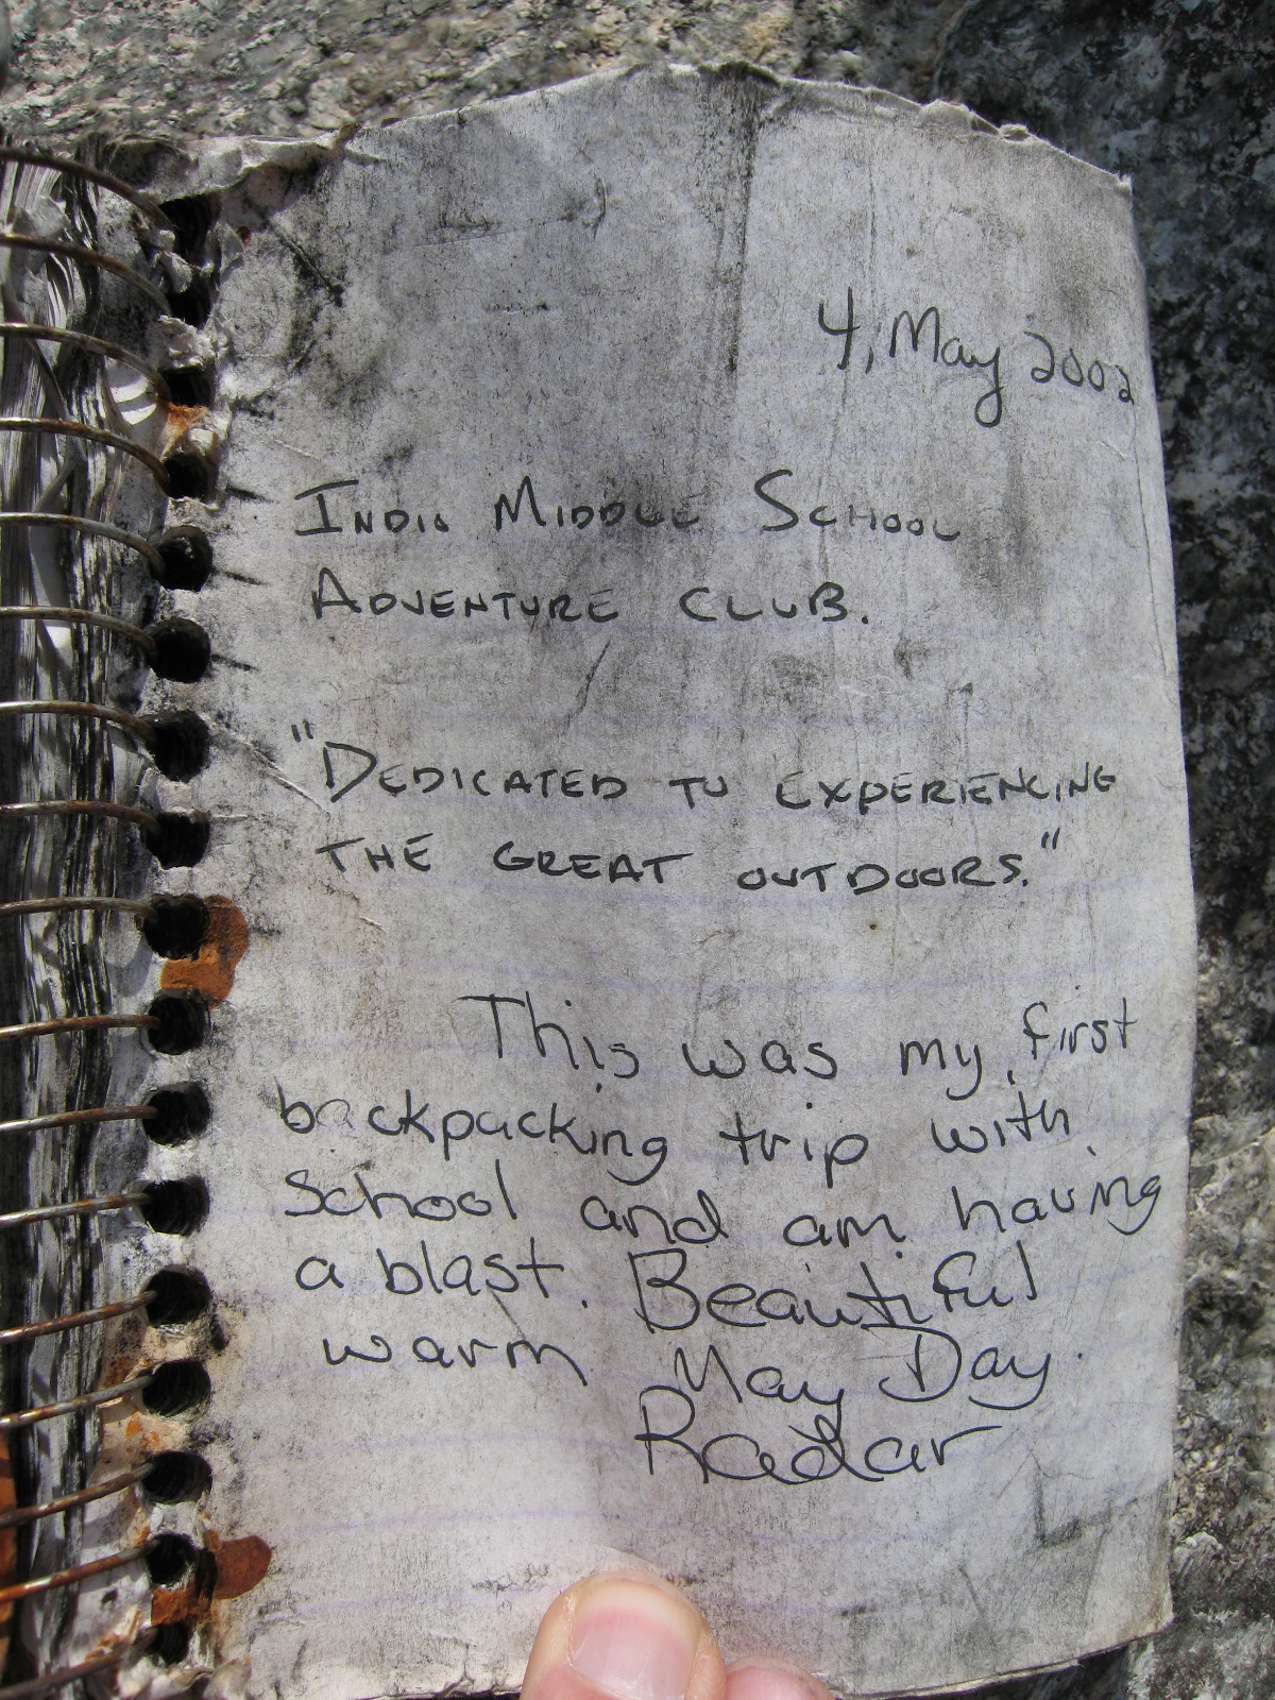 4, May 2002
INDIO MIDDLE SCHOOL
ADVENTURE CLUB.
"DEDICATED TO EXPERIENCING
THE GREAT OUTDOORS."
This was my first
backpacking trip with
School and am having
a blast. Beautiful
warm May Day.
Radar